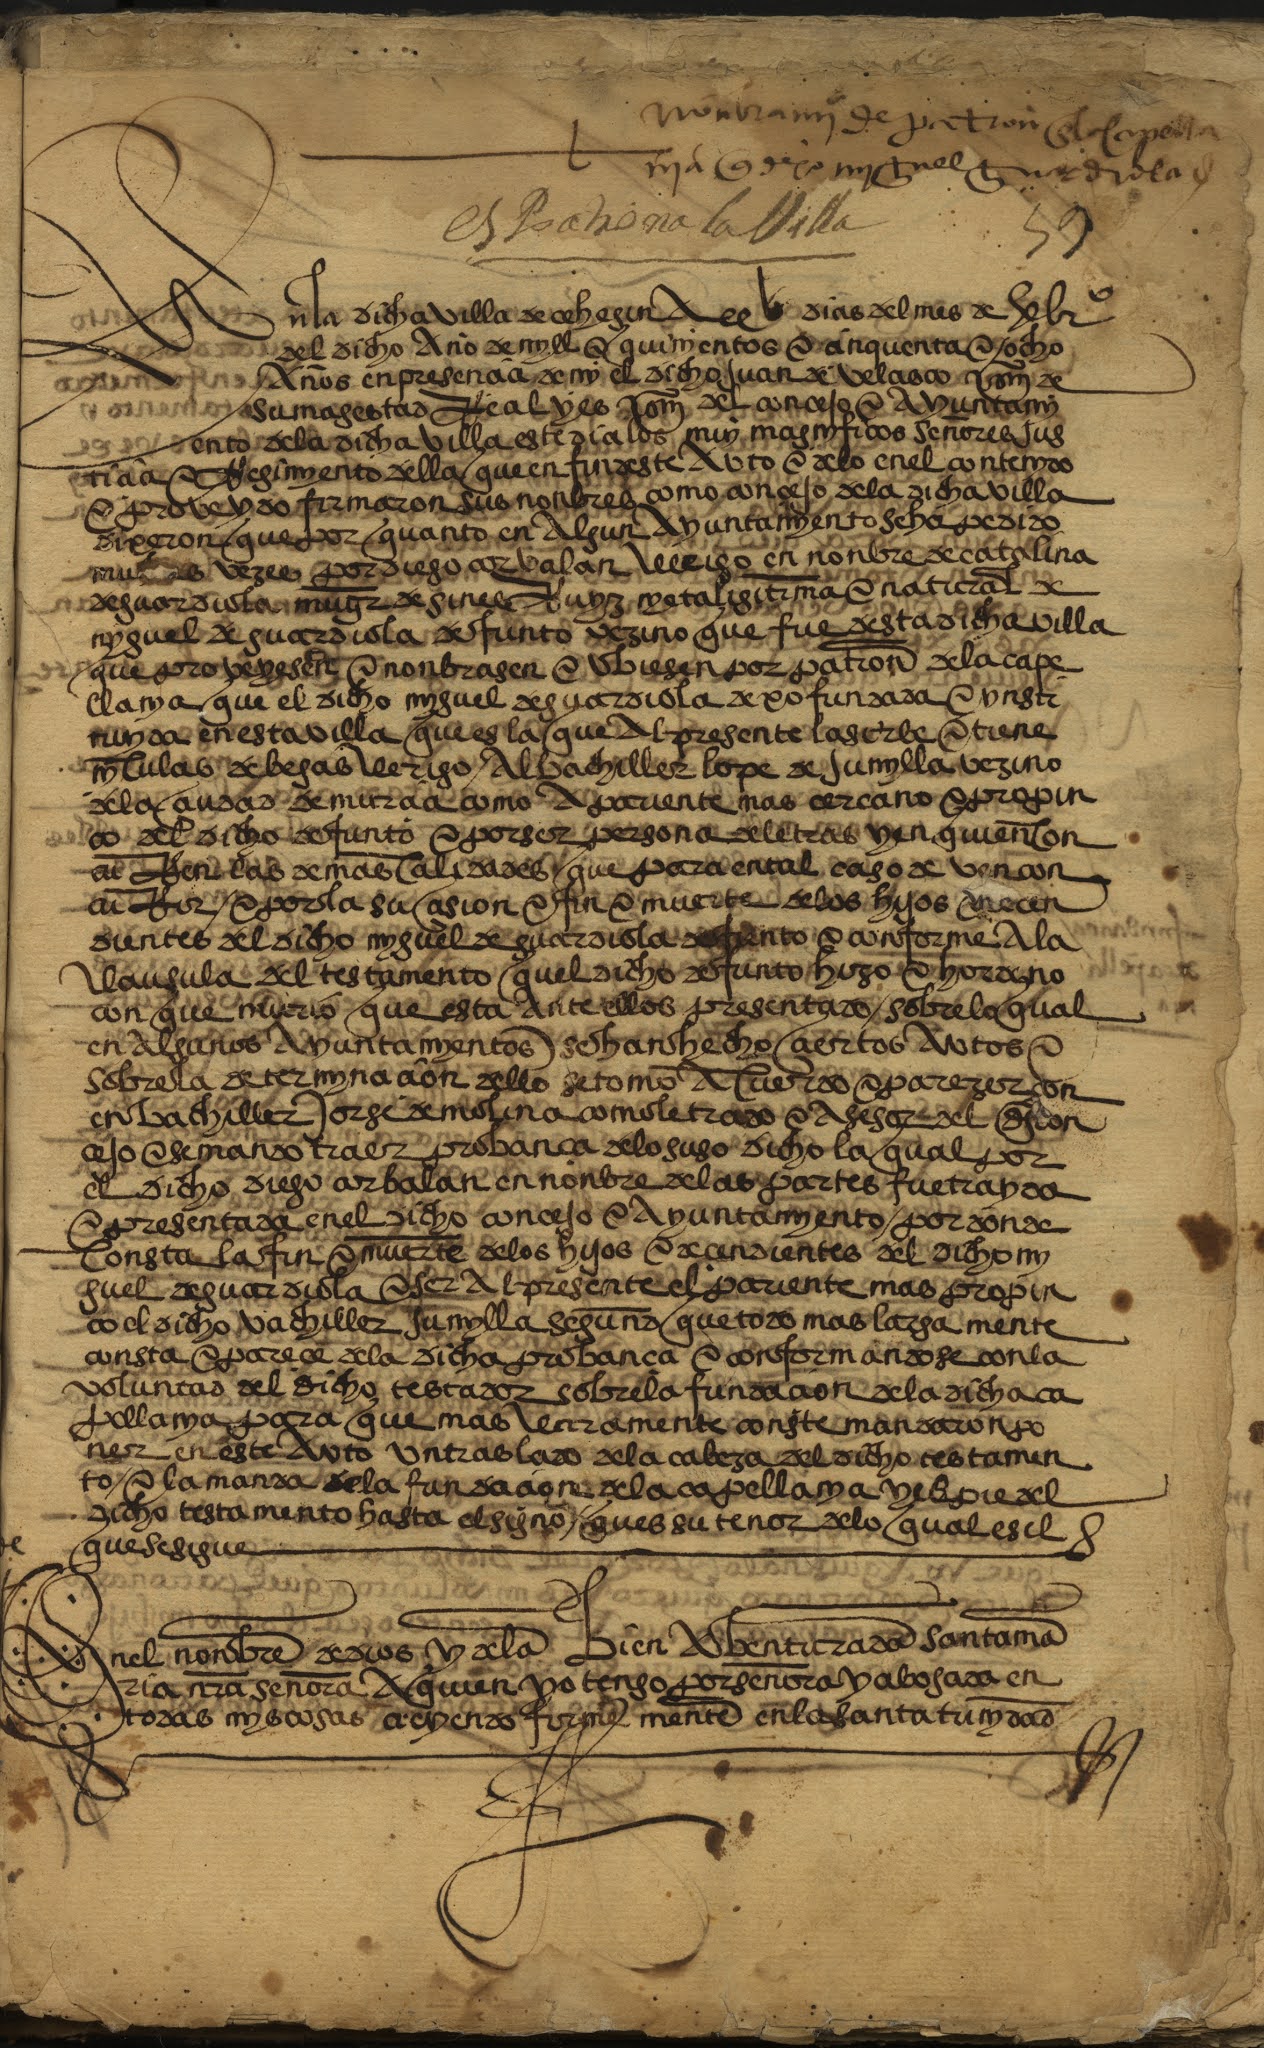 nonbrami° de patron de la capella
nia q̃ dexo miguel guardiola
es Patrona la Villa
59
En la dicha villa de cehegin A xx dias del mes de hebr°
del dicho Año de myll E quinientos E cinquenta E ocho
Años en presencia de mi el dicho Juan de Velasco scrivi de
su magestad Real y es scrivi del concejo E Ayuntami
ento de la dicha villa este dia los muy magnificos señores Jus
ticia E Regimyento della que en fin deste Auto E de lo en el contenido
E proveydo firmaron sus nonbres como concejo de la dicha villa
dixeron que por quanto en Algun Ayuntamyento se ha pedido
muchas vezes por diego corvalan clerigo en nonbre de catalina
de guardiola muger de gines Ruyz nyeta ligitima E natural de
myguel de guardiola defunto vezino que fue desta dicha villa
que proveyesen E nonbrasen E Vbiesen por patron de la cape
llanya que el dicho myguel de guardiola dexo fundada E ynsti
tuyda en esta villa que es la que Al presente la sirbe E tiene
nyculas de begas clerigo Al bachiller lope de Jumylla vezino
de la ciudad de murcia como A pariente mas cercano E propin
co del dicho defunto E por ser persona de letras y en quien con
curren las demas calidades que para en tal caso deven con
currir E por la sucasion E fin E muerte de los hijos E decen
dientes del dicho myguel de guardiola defunto E conforme A la
clausula del testamento quel dicho defunto hizo E hordeno
con que murio que esta Ante ellos presentado sobre lo qual
en Algunos Ayuntamyentos se han hecho ciertos Autos E
sobre la determynacion dello se tomo Acuerdo E parezer con
en bachiller Jorge de molina como letrado E Asesor del dicho con
cejo E se mando traer probanca de lo suso dicho la qual por
el dicho diego corbalan en nonbre de las partes fue trayda
E presentada en el dicho concejo E Ayuntamyento por donde
Consta la fin E muerte de los hijos E decendientes del dicho mi
guel de guardiola E ser Al presente el pariente mas propin
co el dicho vachiller Jumylla segund que todo mas larga mente
consta E parece de la dicha probanca E conformandose con la
voluntad del dicho testador sobre la fundacion de la dicha ca
pellanya para que mas claramente conste mandaron po
ner en este Auto Un traslado de la cabeza del dicho testamen
to E la manda de la fundacion de la capellanya y el pie del
dicho testamento hasta el signo ques su tenor de lo qual es el
que se sigue
En el nonbre de dios y de la bien Abenturada santa ma
ria nra señora A quien yo tengo por señora y abogada en
todas mys cosas creyendo firme mente en la santa trinydad